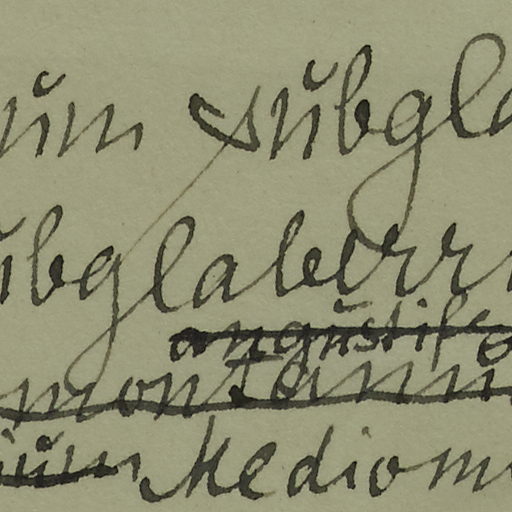 um subgla
ubglaberr
angustifo
montanu
ium Mediom